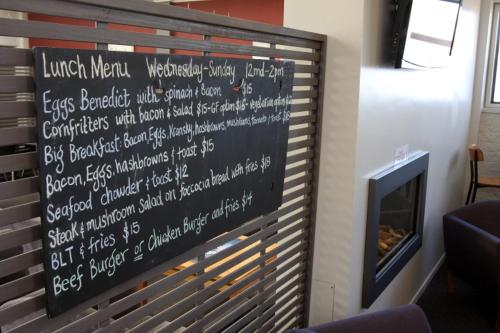 Lunch Menu Wednesday-Sunday 12md-2pm
Eggs Benedict with spinach & bacon $15
Cornfritters with bacon & Salad $15-GF option $16- vegetarian option
Big Breakfast: Bacon, Eggs, Kransky, hashbrowns, mushrooms, tomato & toast $18
Bacon, Eggs, hashbrowns & toast $15
Seafood chowder & toast $12
Steak & mushroom Salad on foccocia bread with fries $19
BLT & fries $15
Beef Burger or Chicken Burger and fries $14